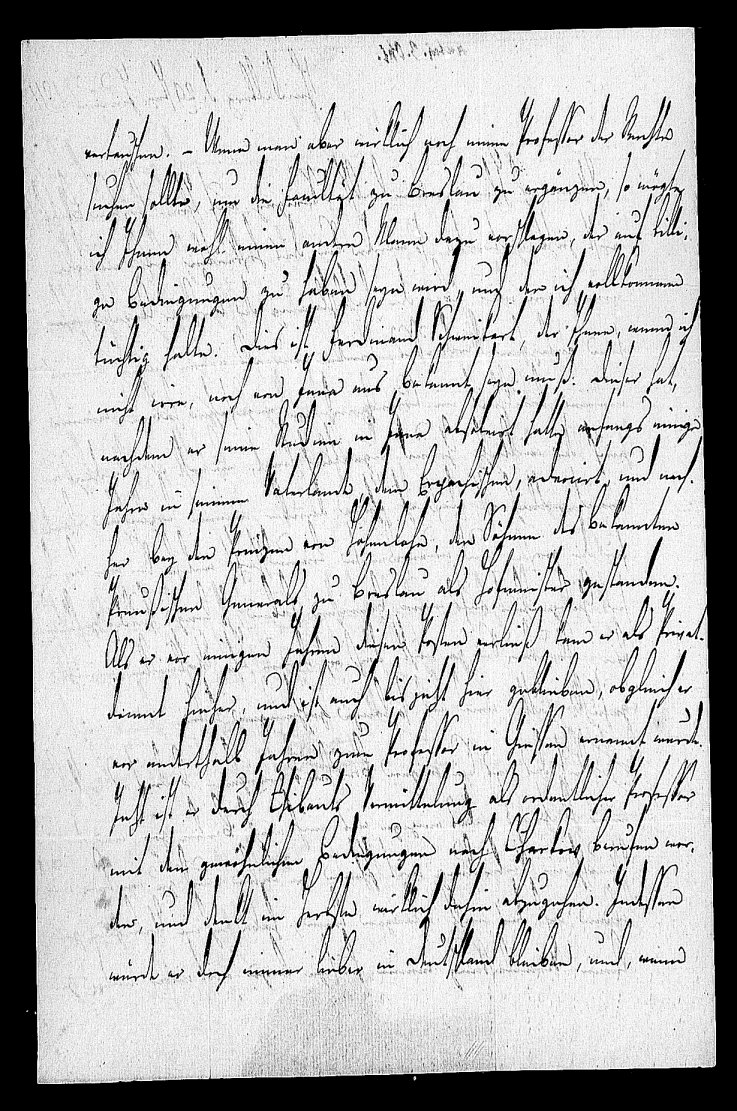 vertauschen. – Wenn man aber wirklich noch einen Professor der Rechte
suchen sollte, um die Facultät zu Breslau zu ergänzen, so mögte
ich Ihnen wohl einen andern Mann dazu vorschlagen, der auf billi-
ge Bedingungen zu haben seyn wird, und den ich vollkommen
tüchtig halte. Dies ist Ferdinand Schweikart, der Ihnen, wenn ich
nicht irre, noch von Jena aus bekannt seyn muß. Dieser hat,
nachdem er seine Studien in Jena absolvirt hatte anfangs einige
Jahre in seinem Vaterlande, dem Erpachischen, advocirt, und nach-
her bey den Prinzen von Hohenlohe, den Söhnen des bekannten
Preußischen Generals zu Breslau als Hofmeister gestanden.
Als er vor einigen Jahren diesen Posten verließ kam er als Privat-
docent hieher, und ist auch bis jetzt hier geblieben, obgleich er
vor anderthalb Jahren zum Professor in Giessen ernannt wurde.
Jetzt ist er durch Thibauts Vermittelung als ordentlicher Professor
mit den gewöhnlichen Bedingungen nach Charkow berufen wor-
den, und denkt im Herbste wirklich dahin abzugehen. Indessen
würde er doch immer lieber in Deutschland bleiben, und, wenn